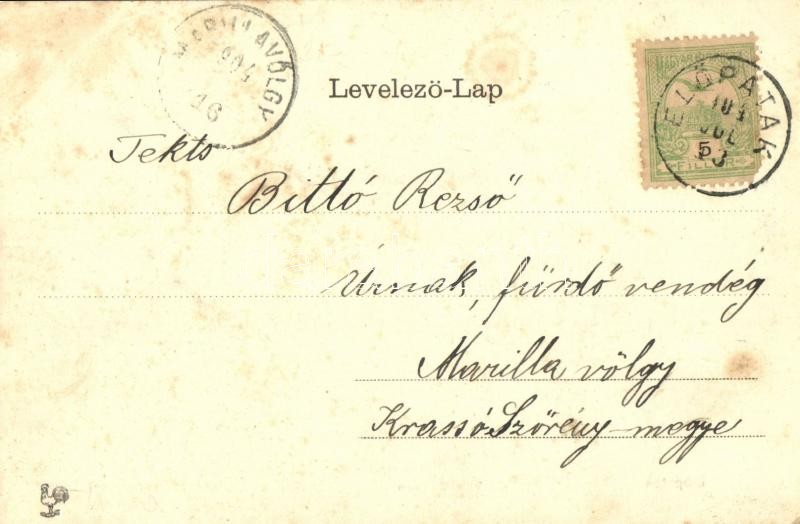 MARILLAVÖLGY
904
16
Levelező-Lap
MAGYAR
5
FILLÉR
ELŐPATAK
JUL
Tekts
Bittó Rezső
Úrnak, fürdő vendég
Marilla völgy
Krassó Szörény-megye